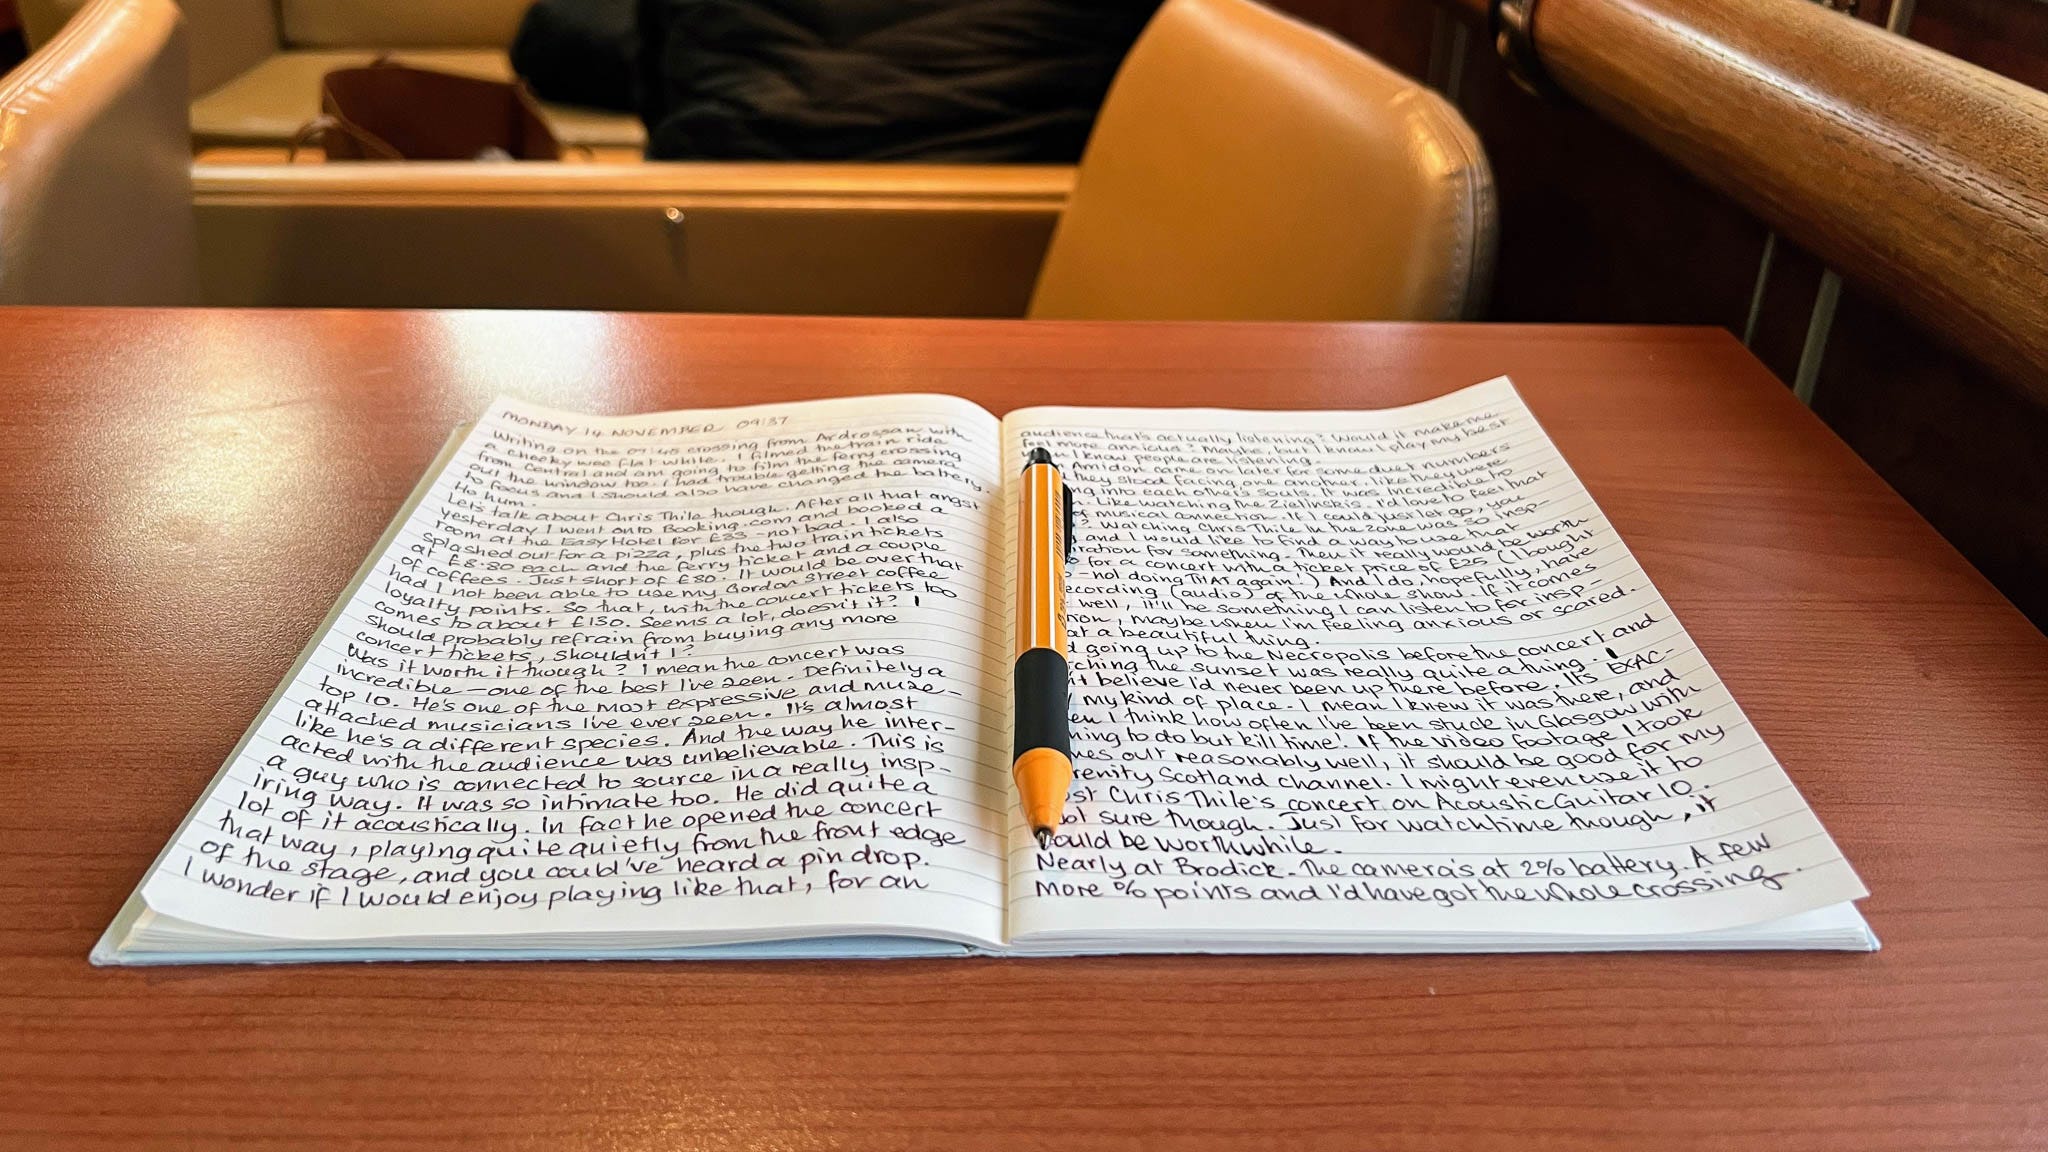 MONDAY 14 NOVEMBER 09:37
Writing on the 09:45 crossing from Ardrossan with
a cheeky wee flat white. I filmed the train ride
from Central and am going to film the ferry crossing
out the window too. I had trouble getting the camera
to focus and I should also have changed the battery.
Ho hum.
Let's talk about Chris Thile though. After all that angst
yesterday I went onto Booking.com and booked a
room at the Easy Hotel for £33 - not bad. I also
splashed out for a pizza, plus the two train tickets
at £8.80 each and the ferry ticket and a couple
of coffees. Just short of £80. It would be over that
had I not been able to use my Gordon Street coffee
loyalty points. So that, with the concert tickets too
comes to about £130. Seems a lot, doesn't it? I
should probably refrain from buying any more
concert tickets, shouldn't I?
Was it worth it though? I mean the concert was
incredible - one of the best I've seen. Definitely a
top 10. He's one of the most expressive and muse-
attached musicians I've ever seen. It's almost
like he's a different species. And the way he inter-
acted with the audience was unbelievable. This is
a guy who is connected to source in a really insp-
iring way. It was so intimate too. He did quite a
lot of it acoustically. In fact he opened the concert
that way, playing quite quietly from the front edge
of the stage, and you could've heard a pin drop.
I wonder if I would enjoy playing like that, for an
audience that's actually listening? Would it make me
feel more anxious? Maybe, but I know I play my best
when I know people are listening.
Amidon came on later for some duet numbers
they stood facing one another, like they were
into each other's souls. It was incredible to
Like watching the Zielinskis. I'd love to feel that
of musical connection. If I could just let go, you
? Watching Chris Thile in the zone was so insp-
and I would like to find a way to use that
iration for something. Then it really would be worth
for a concert with a ticket price of £25 (I bought
- not doing THAT again!) And I do, hopefully, have
recording (audio) of the whole show. If it comes
well, it'll be something I can listen to for insp-
, maybe when I'm feeling anxious or scared.
at a beautiful thing.
going up to the Necropolis before the concert and
the sunset was really quite a thing. I
believe I'd never been up there before. It's EXAC-
my kind of place. I mean I knew it was there, and
I think how often I've been stuck in Glasgow with
to do but kill time! If the video footage I took
out reasonably well, it should be good for my
Serenity Scotland channel. I might even use it to
Chris Thile's concert on Acoustic Guitar 10.
Not sure though. Just for watchtime though, it
could be worthwhile.
Nearly at Brodick. The camera's at 2% battery. A few
more % points and I'd have got the whole crossing.